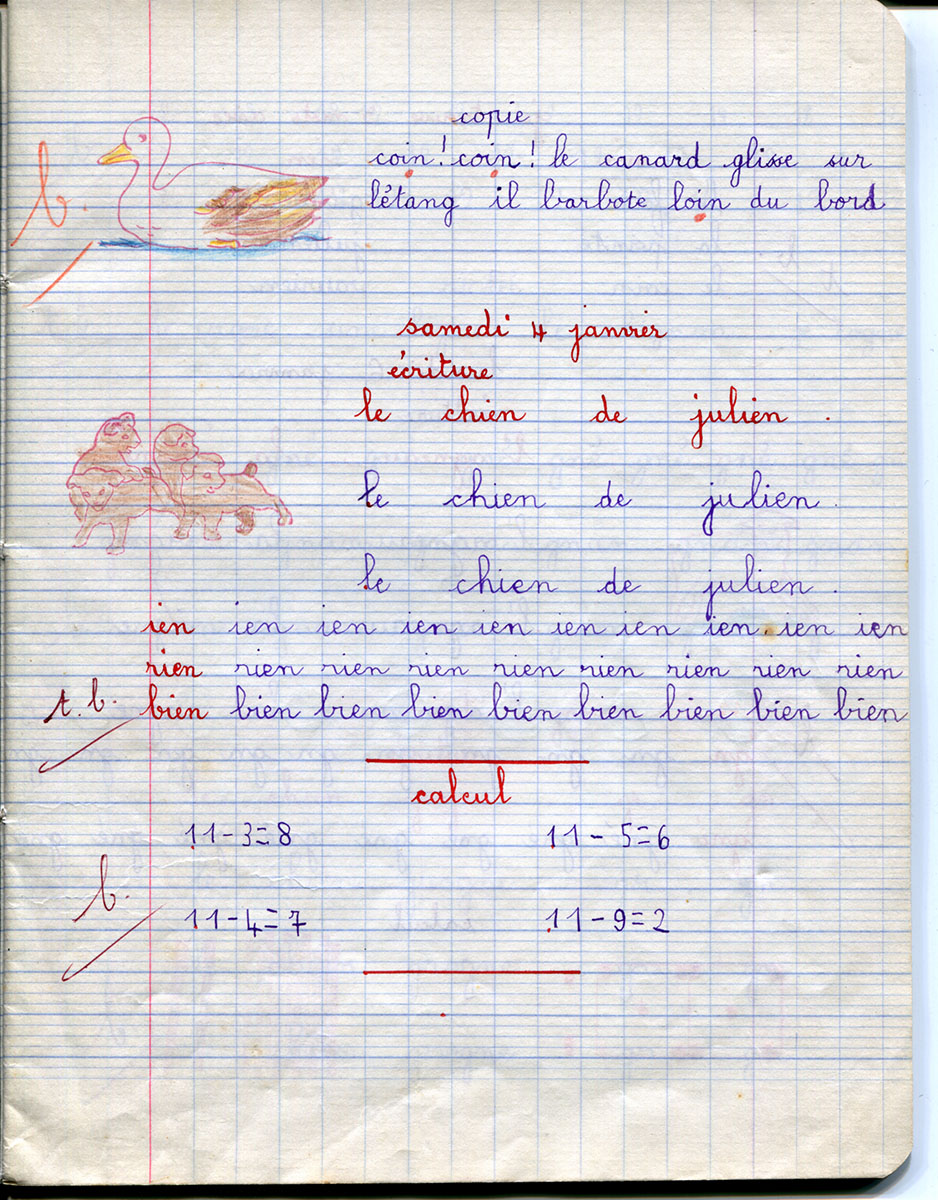 copie
coin! coin! le canard glisse sur
l'étang il barbote loin du bord
b.
samedi 4 janvier
écriture
le chien de julien.
le chien de julien.
le chien de julien.
ien ien ien ien ien ien ien ien ien ien
rien rien rien rien rien rien rien rien rien
t.b. bien bien bien bien bien bien bien bien bien
calcul
11-3=8 11-5=6
b.
11-4=7 11-9=2